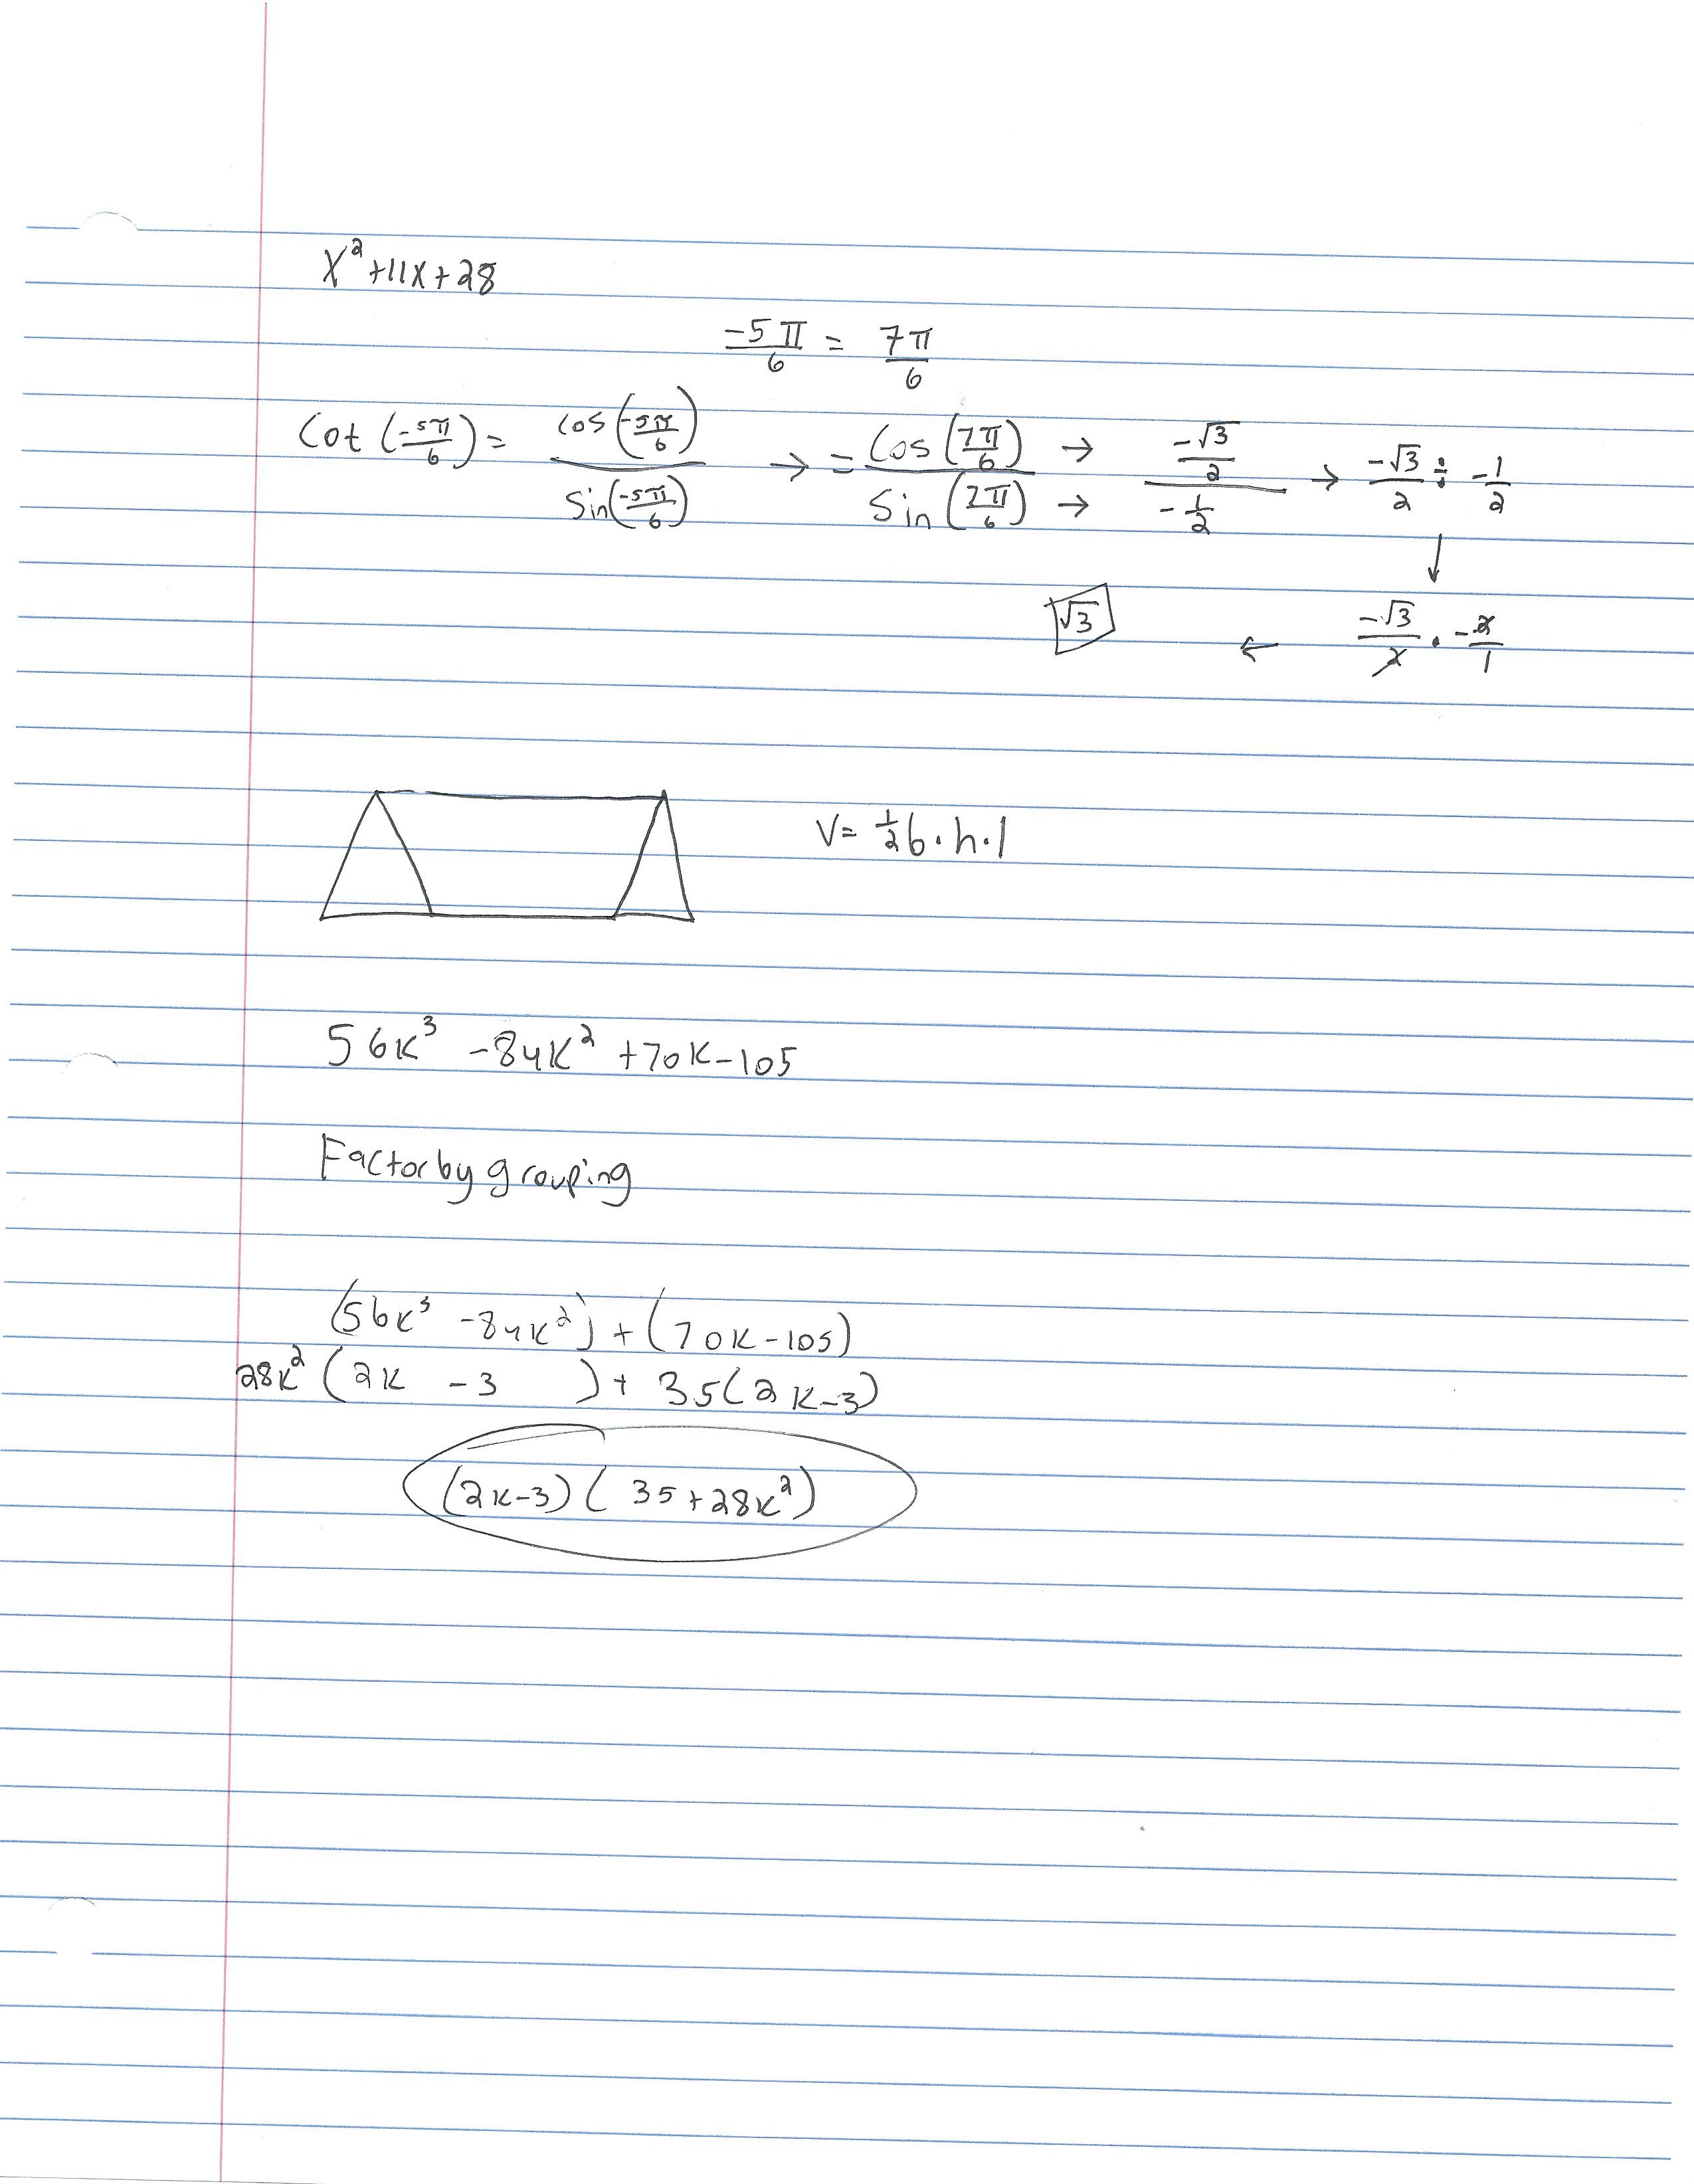 x² + 11x + 28
-5π/6 = 7π/6
Cot (-5π/6) = cos(-5π/6) / Sin(-5π/6) → = Cos (7π/6) / Sin (7π/6) → → (-√3/2) / (-1/2) → -√3/2 ÷ -1/2
↓
√3 ← -√3/2 · -2/1
V = 1/2 b · h · l
56k³ - 84k² + 70k - 105
Factor by grouping
(56k³ - 84k²) + (70k - 105)
28k² (2k - 3) + 35(2k - 3)
(2k-3) (35 + 28k²)